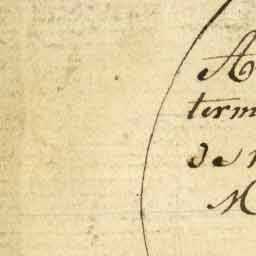 A
term
de
M